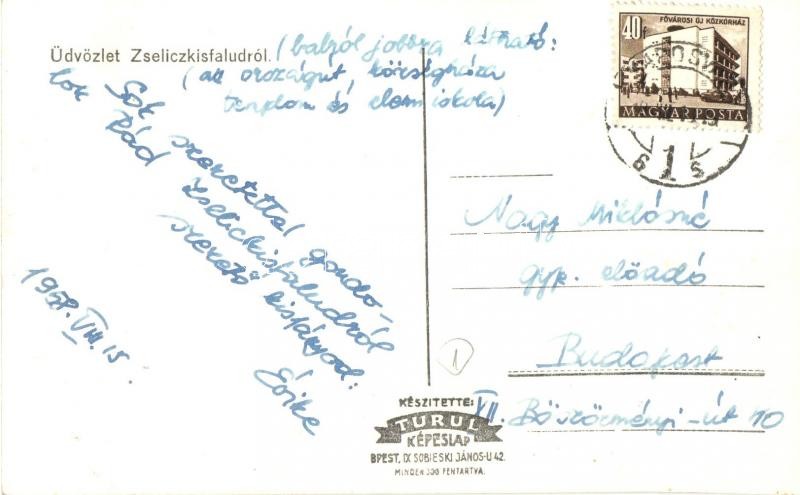 Üdvözlet Zseliczkisfaludról.
(balról jobbra látható:
(az országut, községháza
templom és elemi iskola)
Sok szeretettel gondo-
lok Rád Zseliczkisfaludról
szerető kislányod:
Évike
1958. VIII. 15.
40f
FŐVÁROSI ÚJ KÖZKÓRHÁZ
MAGYAR POSTA
6 1 5
Nagy Miklósné
gyp. előadó
Budapest
XII. Böszörményi-út 10
1
KÉSZITETTE:
TURUL
KÉPESLAP
BPEST, IX SOBIESKI JÁNOS-U 42.
MINDEN JOG FENTARTVA.